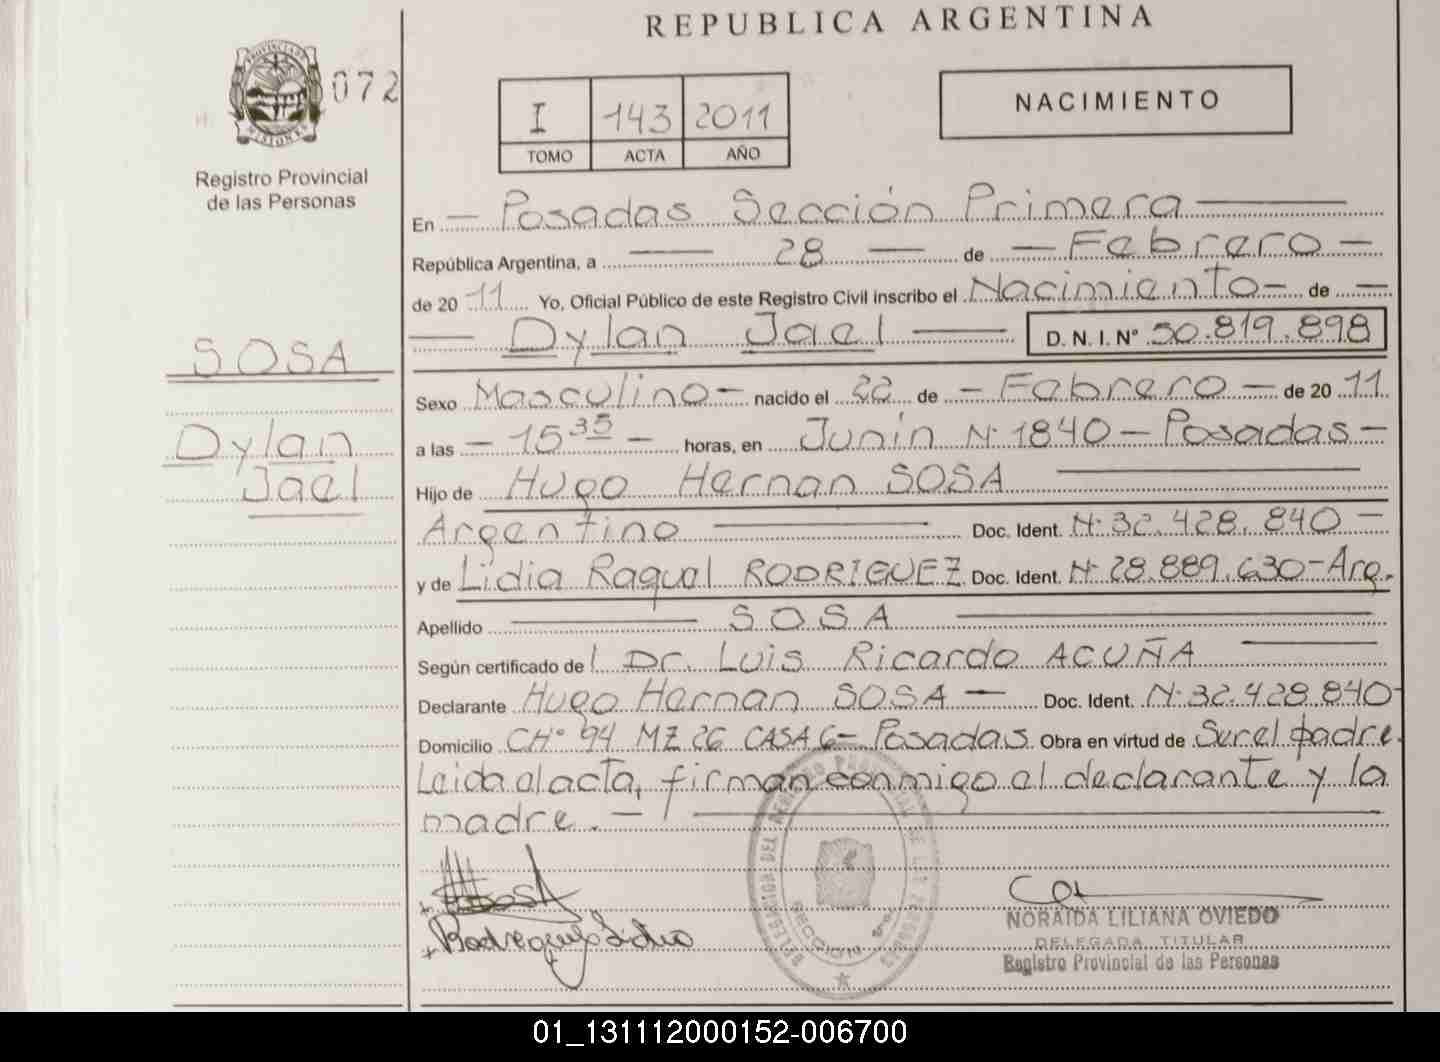 REPUBLICA ARGENTINA
PROVINCIA DE MISIONES
072
Registro Provincial
de las Personas
I 143 2011
TOMO ACTA AÑO
NACIMIENTO
En — Posadas Sección Primera —
República Argentina, a — 28 — de — Febrero —
de 20 11 Yo, Oficial Público de este Registro Civil inscribo el Nacimiento — de —
— Dylan Jael — D. N. I. N° 50.819.898
SOSA
Dylan
Jael
Sexo Masculino — nacido el 22 de — Febrero — de 20 11
a las — 15 35 — horas, en Junín N° 1840 — Posadas —
Hijo de Hugo Hernan SOSA —
Argentino — Doc. Ident. N° 32.428.840 —
y de Lidia Raquel RODRIGUEZ Doc. Ident. N° 28.889.630 — Arg.
Apellido — SOSA —
Según certificado del Dr. Luis Ricardo ACUÑA —
Declarante Hugo Hernan SOSA — Doc. Ident. N° 32.428.840 —
Domicilio CH° 94 MZ 26 CASA 6 — Posadas Obra en virtud de Ser el padre.
Leida el acta, firman conmigo el declarante y la
madre. — —
DELEGACION DEL REGISTRO PROVINCIAL DE LAS PERSONAS
SECCION
Sosa
Rodriguez Lidia
NORAIDA LILIANA OVIEDO
DELEGADA TITULAR
Registro Provincial de las Personas
01_131112000152-006700